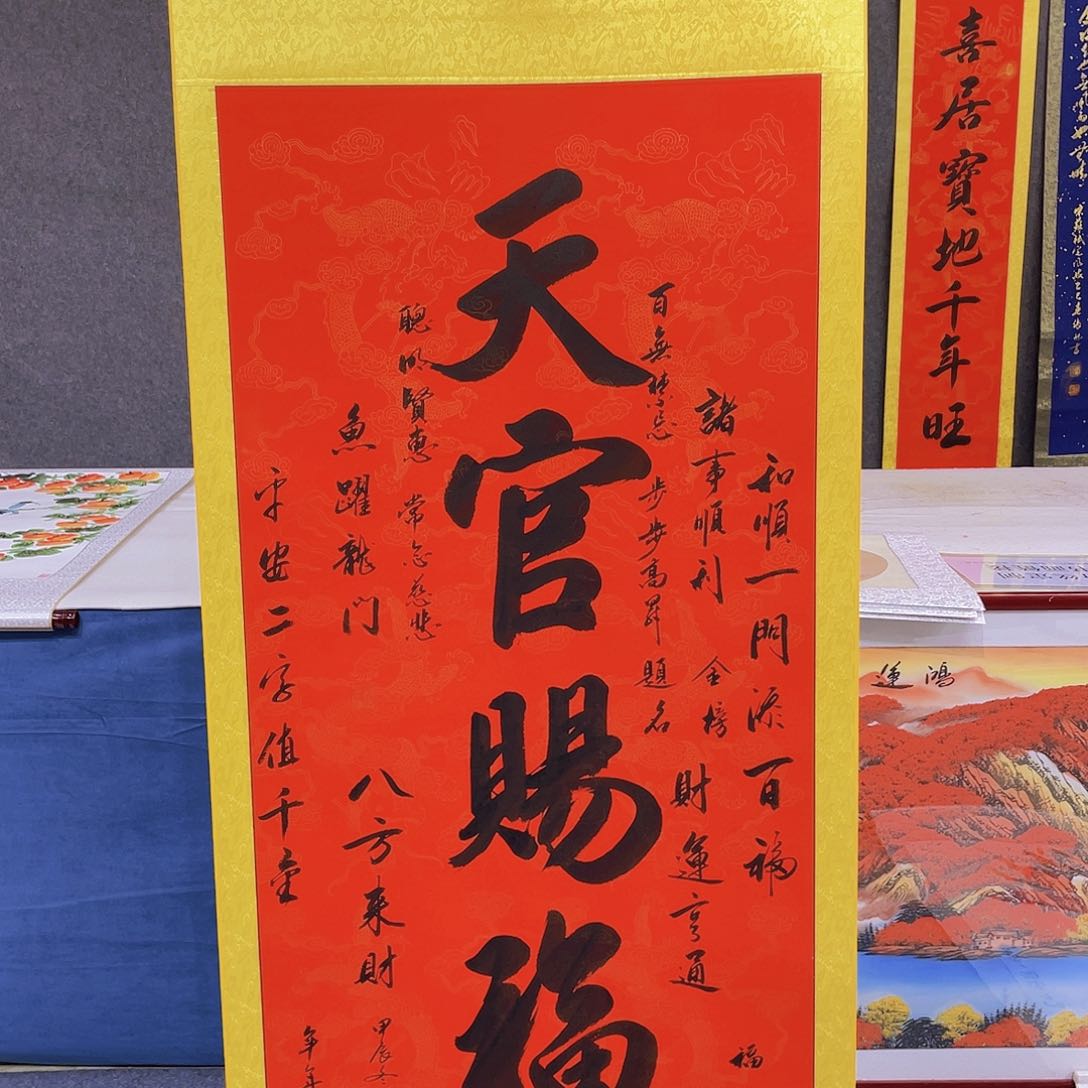 天官賜福
和順一門添百福
諸事順利
金榜
財運亨通
百無禁忌
步步高昇
題名
聰明賢惠
常念慈悲
魚躍龍門
八方來財
平安二字值千金
甲辰冬
年年
福
喜居寶地千年旺
鴻運